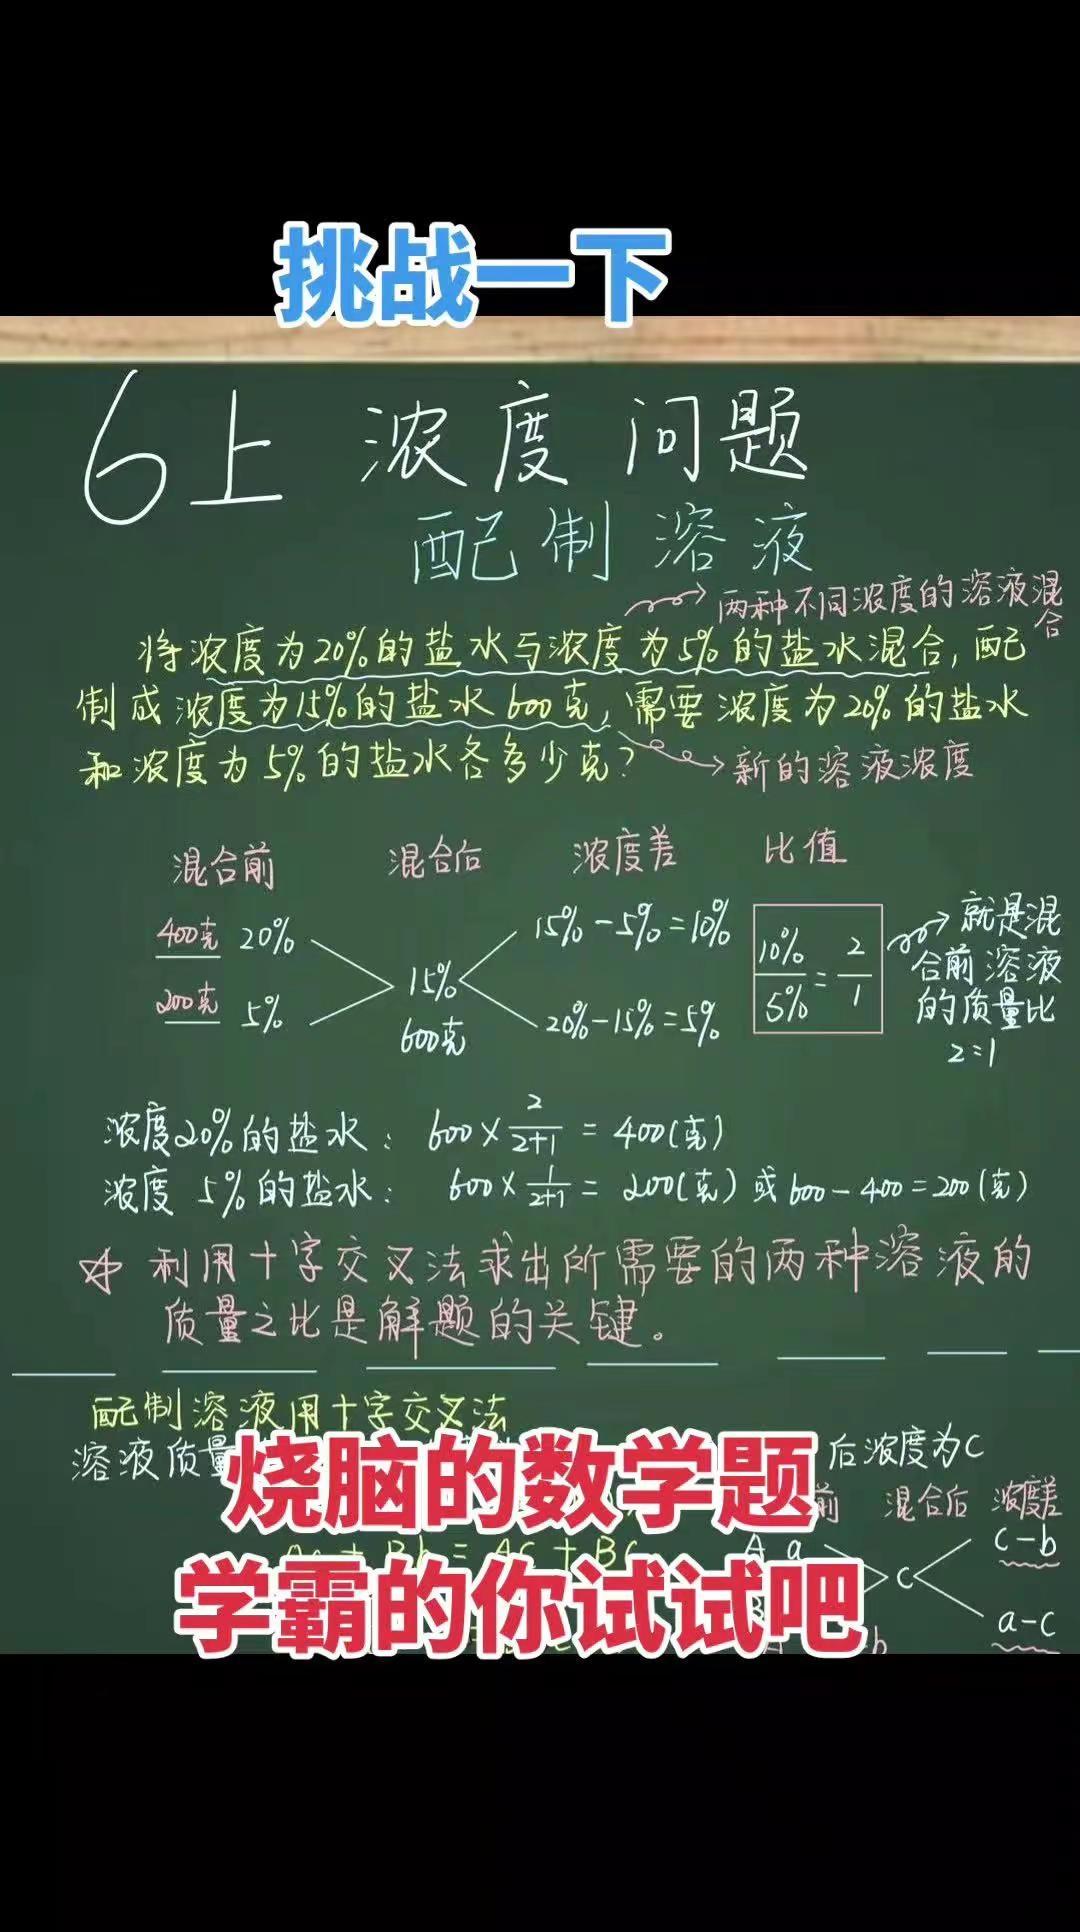 挑战一下
6上 浓度问题
配制溶液
两种不同浓度的溶液混合
将浓度为20%的盐水与浓度为5%的盐水混合,配
制成浓度为15%的盐水600克,需要浓度为20%的盐水
和浓度为5%的盐水各多少克?
新的溶液浓度
混合前 混合后 浓度差 比值
400克 20% 15%-5%=10%
200克 5% 15% 600克 20%-15%=5%
10%/5%=2/1
就是混
合前溶液
的质量比
2:1
浓度20%的盐水: 600×2/(2+1)=400(克)
浓度5%的盐水: 600×1/(2+1)=200(克)或600-400=200(克)
☆ 利用十字交叉法求出所需要的两种溶液的
质量之比是解题的关键。
配制溶液用十字交叉法
溶液质量
后浓度为C
烧脑的数学题
前 混合后 浓度差
A a c c-b
a-c
b
学霸的你试试吧